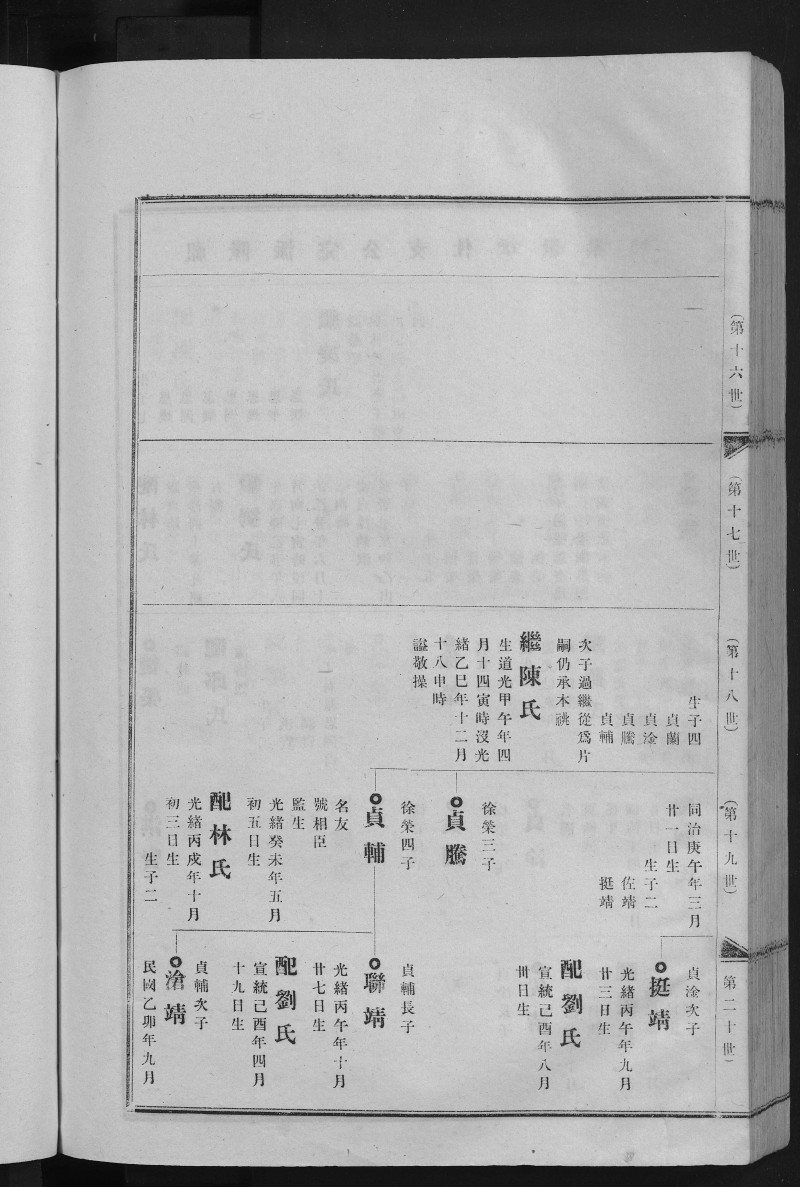 （第十六世）
（第十七世）
（第十八世）
生子四
貞蘭
貞淦
貞騰
貞輔
次子過繼從爲片
嗣仍承本祧
繼陳氏
生道光甲午年四
月十四寅時沒光
緒乙巳年十二月
十八申時
謚敬操
（第十九世）
同治庚午年三月
廿一日生
生子二
佐靖
挺靖
徐榮三子
貞騰
徐榮四子
貞輔
名友
號相臣
監生
光緒癸未年五月
初五日生
配林氏
光緒丙戌年十月
初三日生
生子二
第二十世）
貞淦次子
挺靖
光緒丙午年九月
廿三日生
配劉氏
宣統己酉年八月
卅日生
貞輔長子
聯靖
光緒丙午年十月
廿七日生
配劉氏
宣統己酉年四月
十九日生
貞輔次子
滄靖
民國乙卯年九月